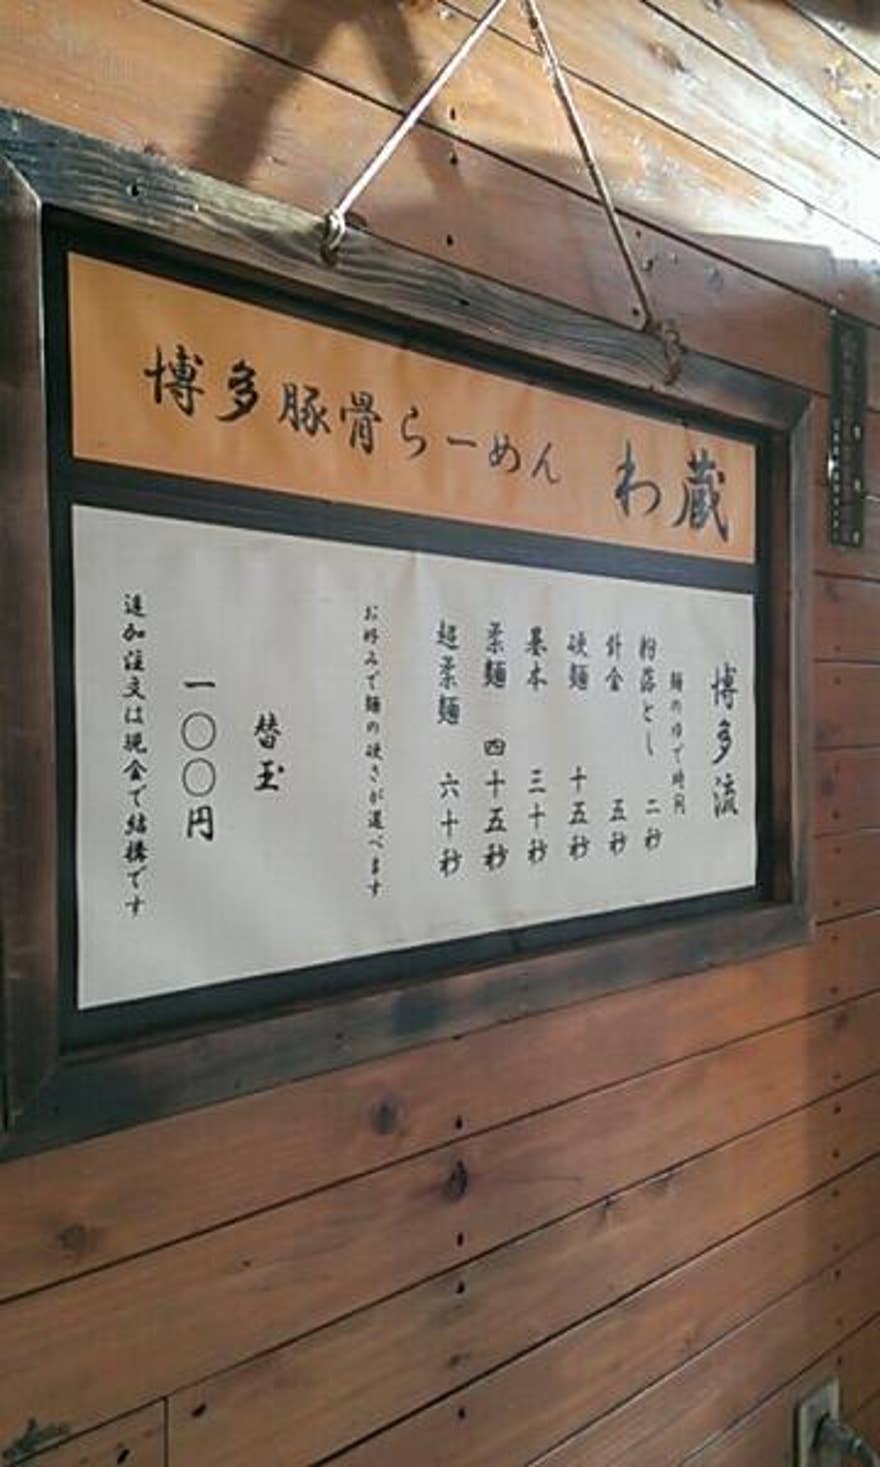 博多豚骨らーめん わ蔵
博多流
麺のゆで時間
粉落とし 二秒
針金 五秒
硬麺 十五秒
基本 三十秒
柔麺 四十五秒
超柔麺 六十秒
お好みで麺の硬さが選べます
替玉
一〇〇円
追加注文は現金で結構です